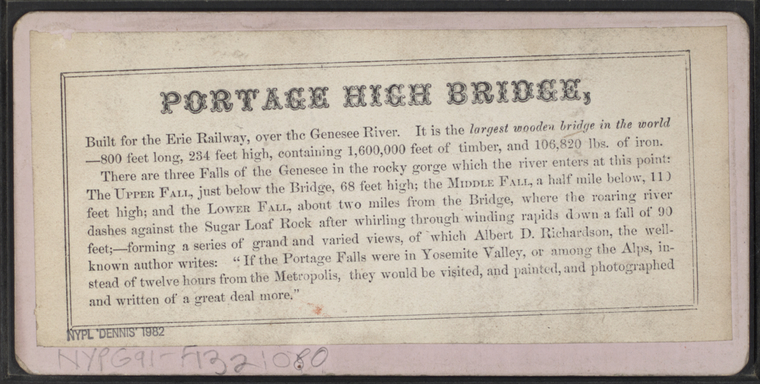 PORTAGE HIGH BRIDGE,
Built for the Erie Railway, over the Genesee River. It is the largest wooden bridge in the world
—800 feet long, 234 feet high, containing 1,600,000 feet of timber, and 106,820 lbs. of iron.
There are three Falls of the Genesee in the rocky gorge which the river enters at this point:
The UPPER FALL, just below the Bridge, 68 feet high; the MIDDLE FALL, a half mile below, 110
feet high; and the LOWER FALL, about two miles from the Bridge, where the roaring river
dashes against the Sugar Loaf Rock after whirling through winding rapids down a fall of 90
feet;—forming a series of grand and varied views, of which Albert D. Richardson, the well-
known author writes: "If the Portage Falls were in Yosemite Valley, or among the Alps, in-
stead of twelve hours from the Metropolis, they would be visited, and painted, and photographed
and written of a great deal more."
NYPL 'DENNIS' 1982
NYPG91-F132 1080